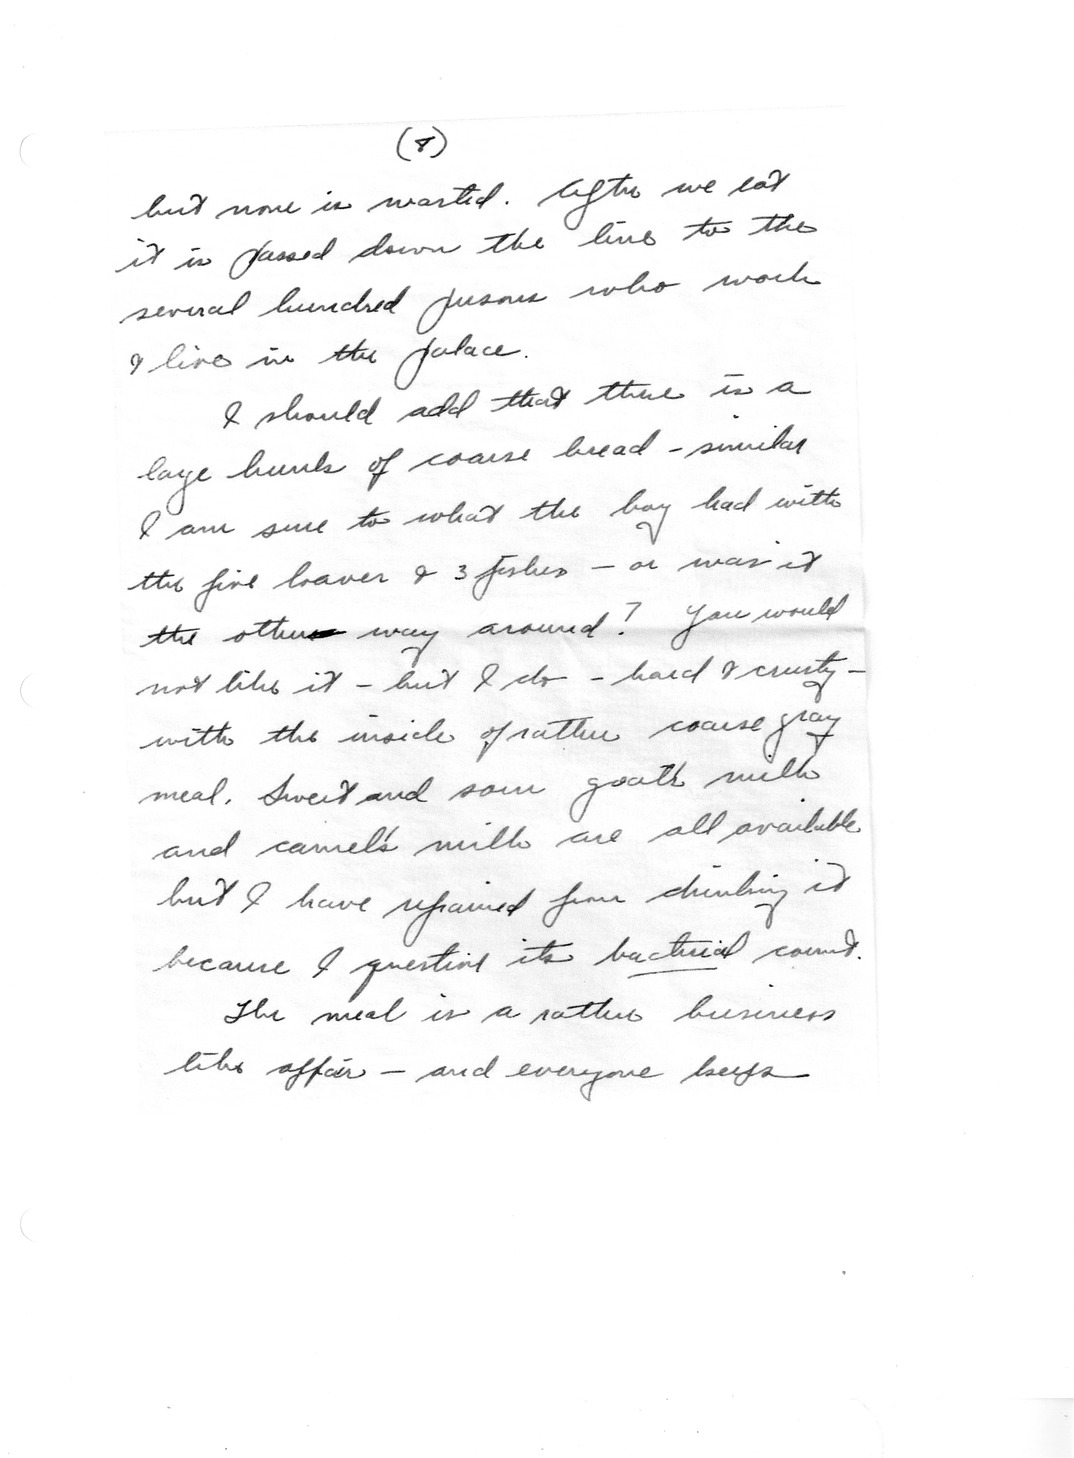 (8)
but none is wasted. After we eat
it is passed down the line to the
several hundred persons who work
& live in the palace.
I should add that there is a
large hunk of coarse bread - similar
I am sure to what the boy had with
the five loaves & 3 fishes - or was it
the other way around? You would
not like it - but I do - hard & crusty -
with the inside of rather coarse gray
meal. Sweet and sour goat's milk
and camel's milk are all available
but I have refrained from drinking it
because I question its bacterial count.
The meal is a rather business
like affair - and everyone keeps